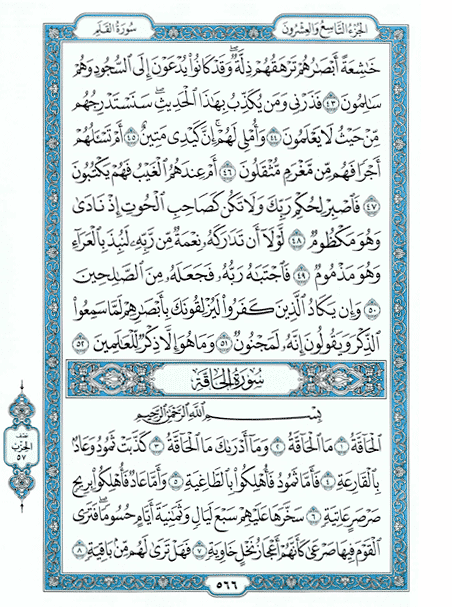 سُورَةُ القَلَمِ
الجُزْءُ التَّاسِعُ وَالعِشْرُونَ
خَٰشِعَةً أَبْصَٰرُهُمْ تَرْهَقُهُمْ ذِلَّةٌ ۖ وَقَدْ كَانُوا۟ يُدْعَوْنَ إِلَى ٱلسُّجُودِ وَهُمْ
سَٰلِمُونَ ٤٣ فَذَرْنِى وَمَن يُكَذِّبُ بِهَٰذَا ٱلْحَدِيثِ ۖ سَنَسْتَدْرِجُهُم
مِّنْ حَيْثُ لَا يَعْلَمُونَ ٤٤ وَأُمْلِى لَهُمْ ۚ إِنَّ كَيْدِى مَتِينٌ ٤٥ أَمْ تَسْـَٔلُهُمْ
أَجْرًا فَهُم مِّن مَّغْرَمٍ مُّثْقَلُونَ ٤٦ أَمْ عِندَهُمُ ٱلْغَيْبُ فَهُمْ يَكْتُبُونَ
٤٧ فَٱصْبِرْ لِحُكْمِ رَبِّكَ وَلَا تَكُن كَصَاحِبِ ٱلْحُوتِ إِذْ نَادَىٰ
وَهُوَ مَكْظُومٌ ٤٨ لَّوْلَآ أَن تَدَٰرَكَهُۥ نِعْمَةٌ مِّن رَّبِّهِۦ لَنُبِذَ بِٱلْعَرَآءِ
وَهُوَ مَذْمُومٌ ٤٩ فَٱجْتَبَٰهُ رَبُّهُۥ فَجَعَلَهُۥ مِنَ ٱلصَّٰلِحِينَ
٥٠ وَإِن يَكَادُ ٱلَّذِينَ كَفَرُوا۟ لَيُزْلِقُونَكَ بِأَبْصَٰرِهِمْ لَمَّا سَمِعُوا۟
ٱلذِّكْرَ وَيَقُولُونَ إِنَّهُۥ لَمَجْنُونٌ ٥١ وَمَا هُوَ إِلَّا ذِكْرٌ لِّلْعَٰلَمِينَ ٥٢
سُورَةُ الحَاقَّةِ
بِسْمِ ٱللَّهِ ٱلرَّحْمَٰنِ ٱلرَّحِيمِ
ٱلْحَآقَّةُ ١ مَا ٱلْحَآقَّةُ ٢ وَمَآ أَدْرَىٰكَ مَا ٱلْحَآقَّةُ ٣ كَذَّبَتْ ثَمُودُ وَعَادٌۢ
بِٱلْقَارِعَةِ ٤ فَأَمَّا ثَمُودُ فَأُهْلِكُوا۟ بِٱلطَّاغِيَةِ ٥ وَأَمَّا عَادٌ فَأُهْلِكُوا۟ بِرِيحٍ
صَرْصَرٍ عَاتِيَةٍ ٦ سَخَّرَهَا عَلَيْهِمْ سَبْعَ لَيَالٍ وَثَمَٰنِيَةَ أَيَّامٍ حُسُومًا فَتَرَى
ٱلْقَوْمَ فِيهَا صَرْعَىٰ كَأَنَّهُمْ أَعْجَازُ نَخْلٍ خَاوِيَةٍ ٧ فَهَلْ تَرَىٰ لَهُم مِّنۢ بَاقِيَةٍ ٨
نصف
الحزب
٥٧
٥٦٦